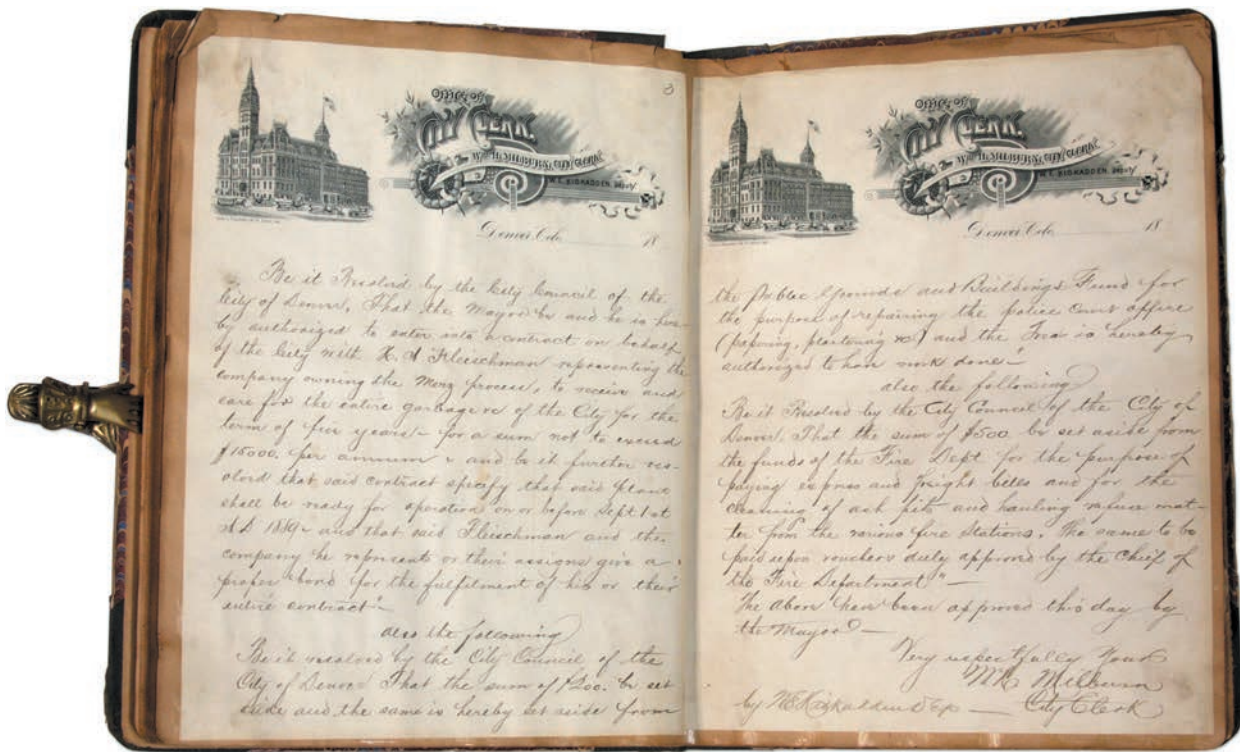 3
Office of
City Clerk.
Wm. H. Milburn, City Clerk.
Denver, Colo. 18
Be it Resolved by the City Council of the
City of Denver, That the Mayor be and he is here-
by authorized to enter into a contract on behalf
of the City with H. A. Fleischman representing the
company owning the Merz process, to receive and
care for the entire garbage &c of the City for the
term of five years – for a sum not to exceed
$15000. per annum – and be it further res-
olved that said contract specify that said plant
shall be ready for operation on or before Sept 1st
A.D. 1889 – and that said Fleischman and the
company he represents or their assigns give a
proper bond for the fulfilment of his or their
entire contract" –
also the following
Be it resolved by the City Council of the
City of Denver That the sum of $200. be set
aside and the same is hereby set aside from
Office of
City Clerk.
Wm. H. Milburn, City Clerk.
Denver, Colo. 18
the Public Grounds and Buildings Fund for
the purpose of repairing the police court office
(papering, plastering &c) and the is hereby
authorized to have work done" –
also the following
Be it Resolved by the City Council of the City of
Denver. That the sum of $500. be set aside from
the funds of the Fire Dept for the purpose of
paying express and freight bills and for the
cleaning of ash pits and hauling refuse mat-
ter from the various fire stations. The same to be
paid upon vouchers duly approved by the Chief of
the Fire Department" –
The above have been approved this day by
the Mayor –
Very respectfully Yours
Milburn
by – City Clerk